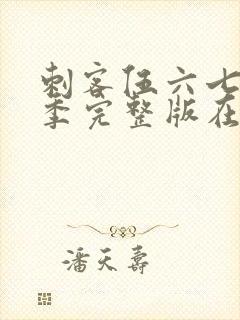 刺客伍六七
季完整版在
潘天寿